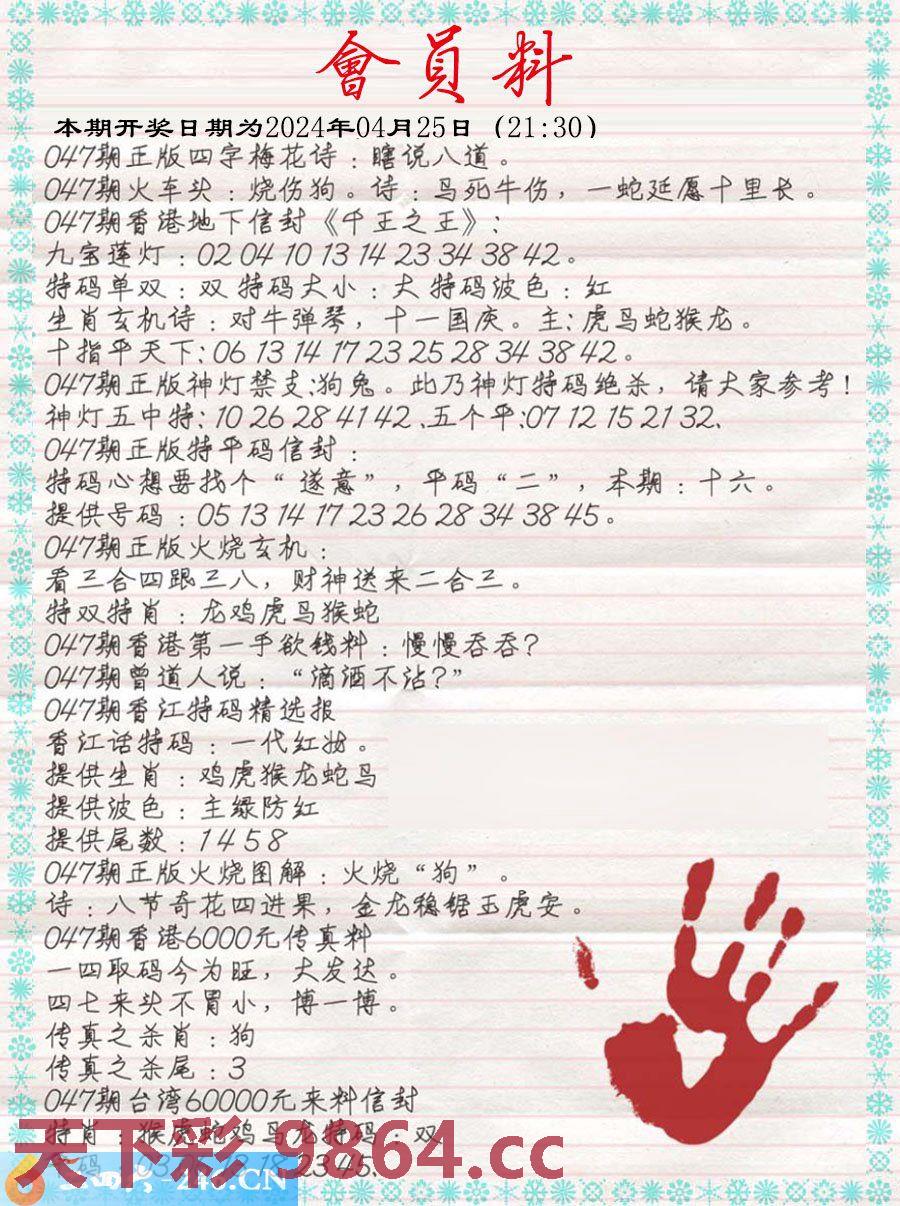 會員料
本期开奖日期为2024年04月25日（21:30）
047期正版四字梅花诗：瞎说八道。
047期火车头：烧伤狗。诗：鸟死牛伤，一蛇延愿十里长。
047期香港地下信封《千王之王》：
九宝莲灯：02 04 10 13 14 23 34 38 42。
特码单双：双 特码大小：大 特码波色：红
生肖玄机诗：对牛弹琴，十一国庆。主：虎鸟蛇猴龙。
十指平天下：06 13 14 17 23 25 28 34 38 42。
047期正版神灯禁支:狗兔。此乃神灯特码绝杀，请大家参考！
神灯五中特：10 26 28 41 42 .五个平:07 12 15 21 32.
047期正版特平码信封：
特码心想要找个“遂意”，平码“二”，本期：十六。
提供号码：05 13 14 17 23 26 28 34 38 45。
047期正版火烧玄机：
看三合四跟三八，财神送来二合三。
特双特肖：龙鸡虎马猴蛇
047期香港第一手欲钱料：慢慢吞吞？
047期曾道人说：“滴酒不沾？”
047期香江特码精选报
香江话特码：一代红妆。
提供生肖：鸡虎猴龙蛇马
提供波色：主绿防红
提供尾数：1 4 5 8
047期正版火烧图解：火烧“狗”。
诗：八节奇花四进果，金龙稳锯玉虎安。
047期香港6000元传真料
一四取码今为旺，大发达。
四七来头不冒小，博一博。
传真之杀肖：狗
传真之杀尾：3
047期台湾60000元来料信封
特肖：猴虎蛇鸡马龙特码：双
天下彩 9864.cc
23 45.